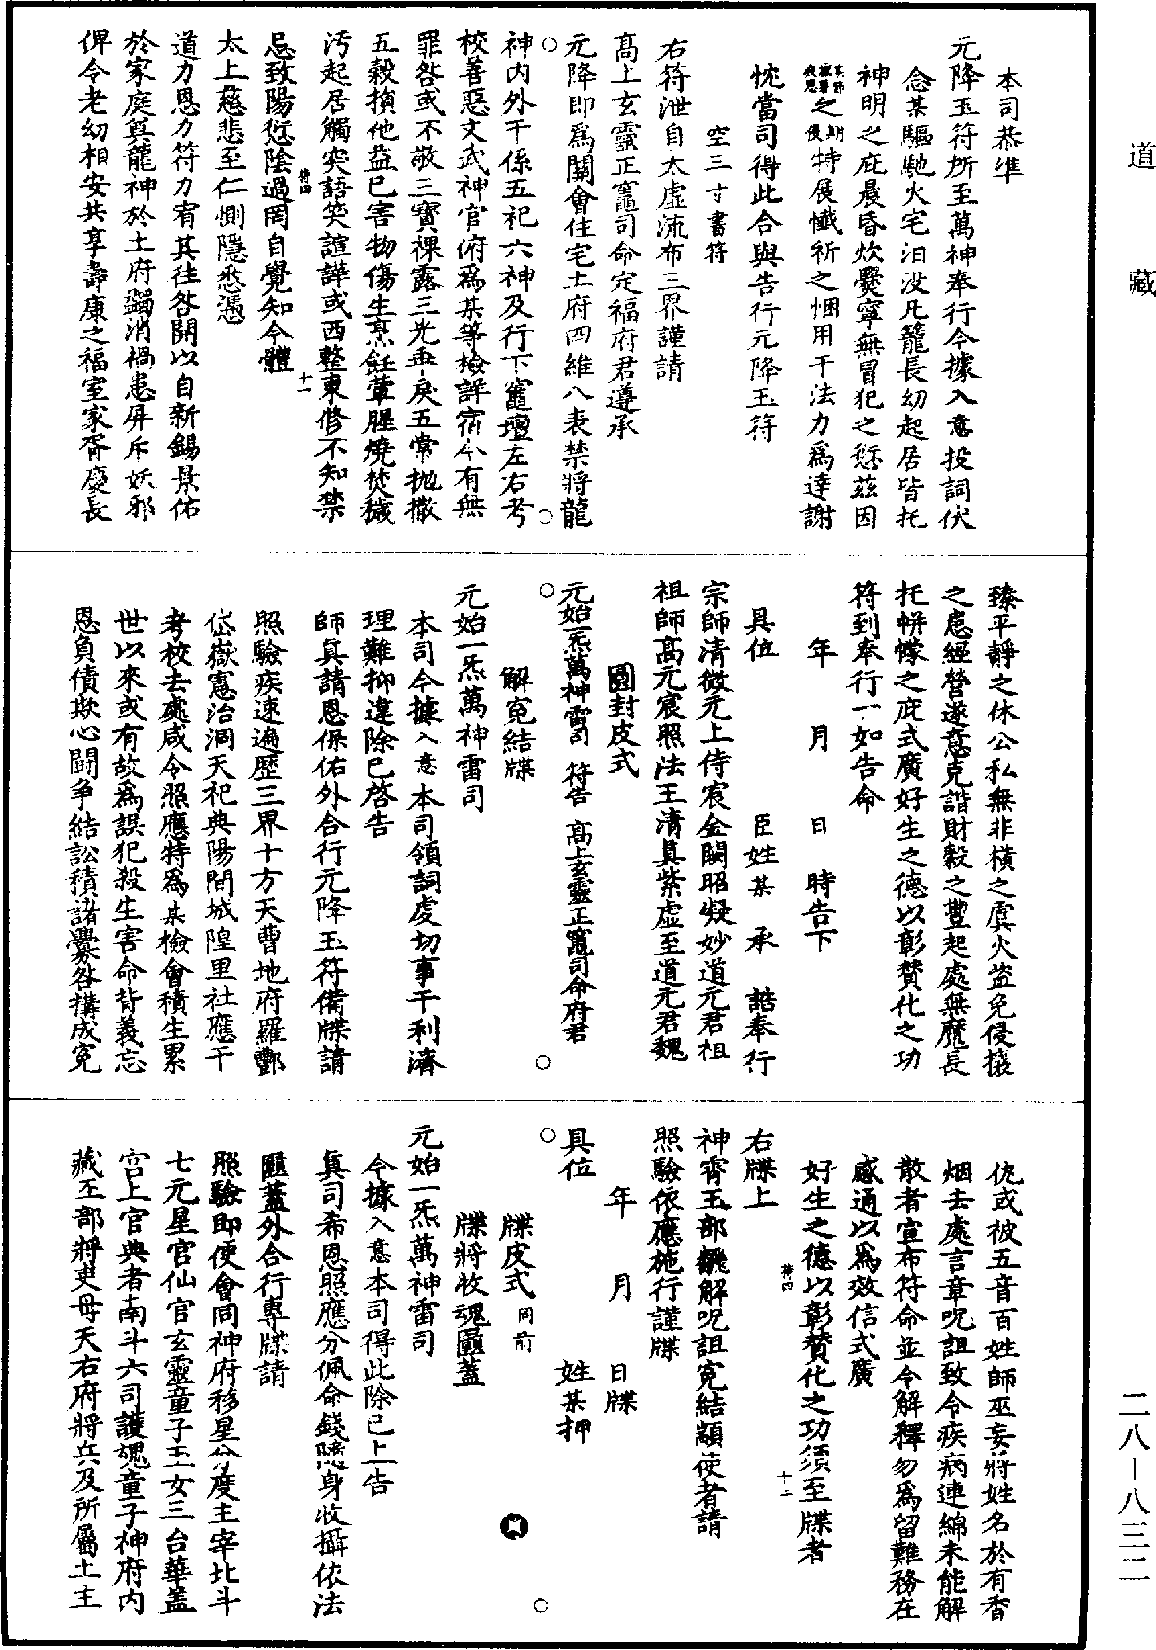 道藏
本司恭準
元降玉符所至萬神奉行今據入意投詞伏
念某驅馳火宅汨没凡籠長幼起居皆托
神明之庇晨昏炊爨寧無冒犯之愆茲因
之期特展懺祈之悃用干法力爲達謝
忱當司得此合與告行元降玉符
空三寸書符
右符泄自太虚流布三界謹請
髙上玄靈正竈司命定福府君遵承
元降即爲關會住宅土府四維八表禁將龍
神内外干係五祀六神及行下竈壇左右考
校善惡文武神官俯爲某等檢詳宿今有無
罪咎或不敬三寳裸露三光盂戾五常抛撒
五穀損他益已害物傷生烹飪葷腥燒焚穢
汚起居觸突語笑諠譁或西整東修不知禁
忌致陽愆陰過罔自覺知今體
太上慈悲至仁惻隱悉憑
道力恩力符力宥其徃咎開以自新錫景佑
於家庭奠龍神於土府蠲消禍患屏斥妖邪
俾令老幼相安共享壽康之福室家胥慶長
符四
十一
臻平靜之休公私無非横之虞火盗免侵攘
之慮經營遂意克諧財穀之豐起處無魔長
托帡幪之庇式廣好生之德以彰賛化之功
符到奉行一如告命
年 月 日 時告下
具位 臣姓某 承 誥奉行
宗師清微元上侍宸金闕昭凝妙道元君祖
祖師髙元宸照法王清真紫虚至道元君魏
圓封皮式
元始一炁萬神雷司 符告 髙上玄靈正竈司命府君
解冤結牒
元始一炁萬神雷司
本司今據入意本司領詞虔切事干利濟
理難抑違除已啓告
師真請恩保佑外合行元降玉符備牒請
照驗疾速遍歷三界十方天曹地府羅酆
岱嶽憲治洞天祀典陽間城隍里社應干
考校去處咸令照應特爲某檢會積生累
世以來或有故爲誤犯殺生害命背義忘
恩負債欺心鬪争結訟積諸釁咎構成冤
仇或被五音百姓師巫妄將姓名於有香
烟去處言章呪詛致令疾病連綿未能解
散者宣布符命並令解釋勿爲留難務在
感通以爲效信式廣
好生之德以彰賛化之功須至牒者
右牒上
神霄玉部解呪詛冤結顓使者請
照驗依應施行謹牒
年 月 日牒
具位 姓某押
符四
十二
牒皮式 同前
牒將收魂匾蓋
元始一炁萬神雷司
今據入意本司得此除已上告
真司希恩照應分佩命錢隨身收攝依法
匾蓋外合行專牒請
照驗即便會同神府移星分度主宰北斗
七元星官仙官玄靈童子玉女三台華蓋
宫上官典者南斗六司護魂童子神府内
藏五部將吏母天右府將兵及所屬土主
二八—八三二